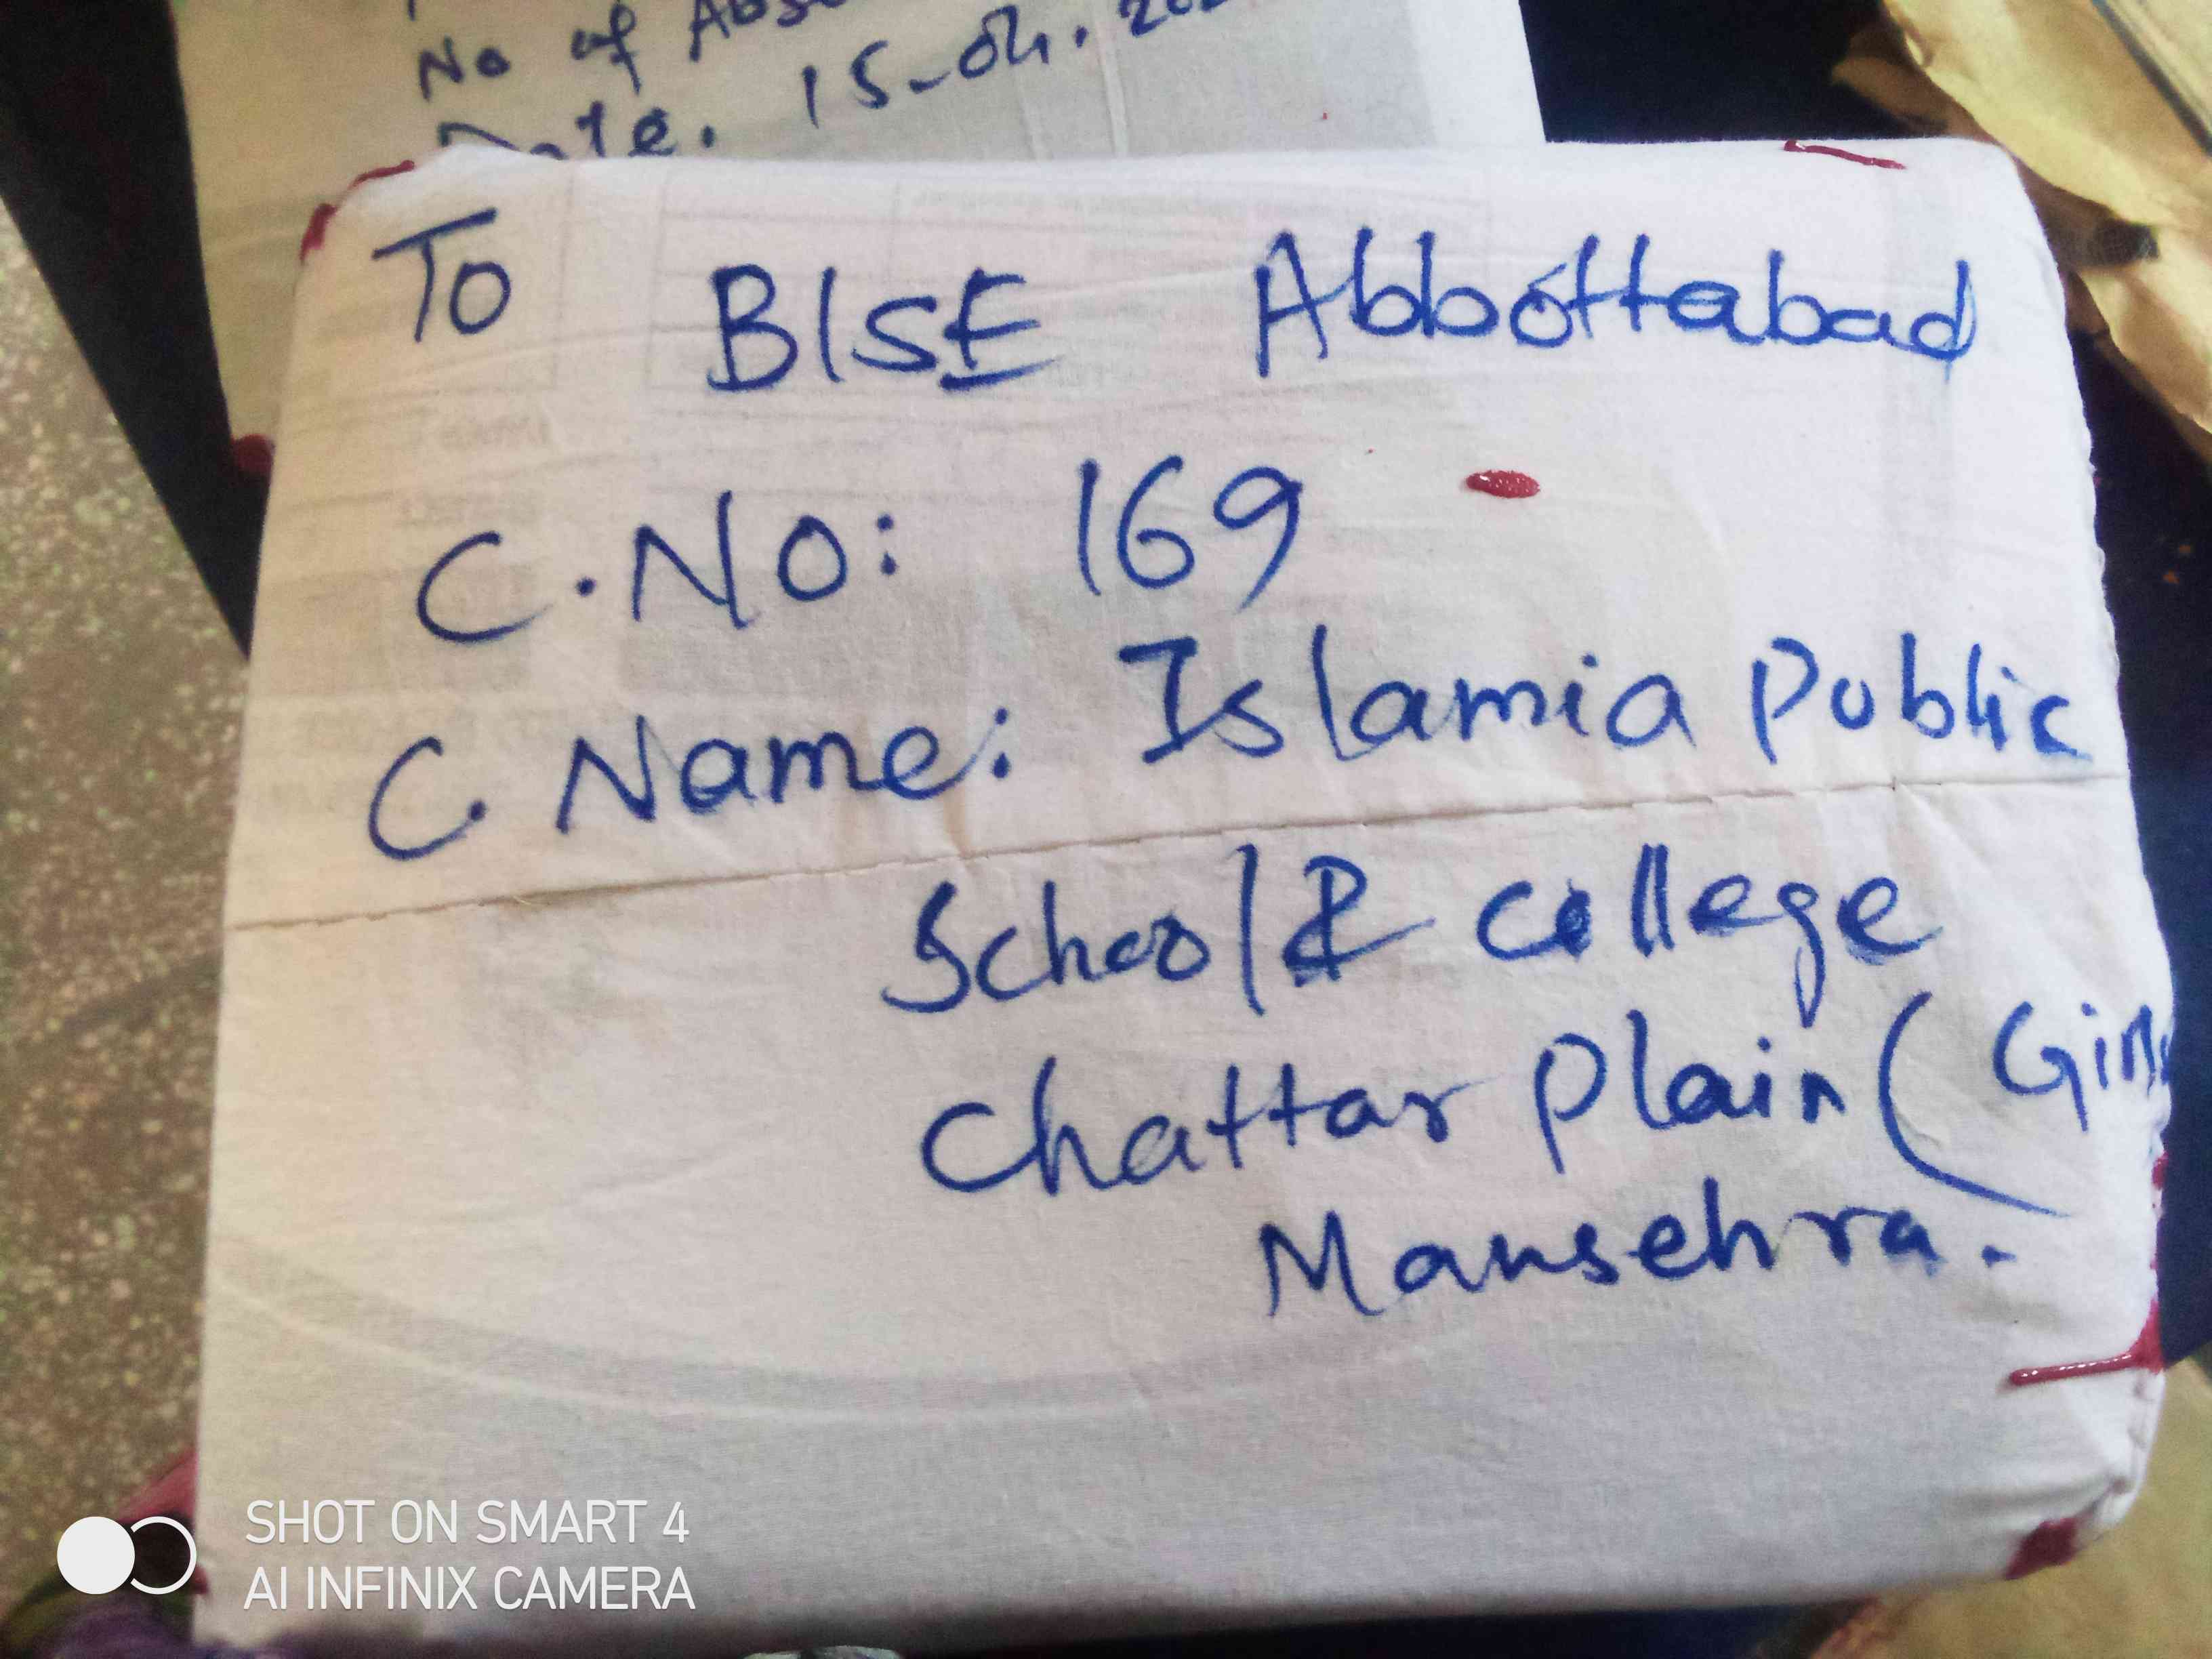 No of
Date. 15-04.
To BISE Abbottabad
C.No: 169
C. Name: Islamia Public
School & College
Chattar Plain (
Mansehra.
SHOT ON SMART 4
AI INFINIX CAMERA